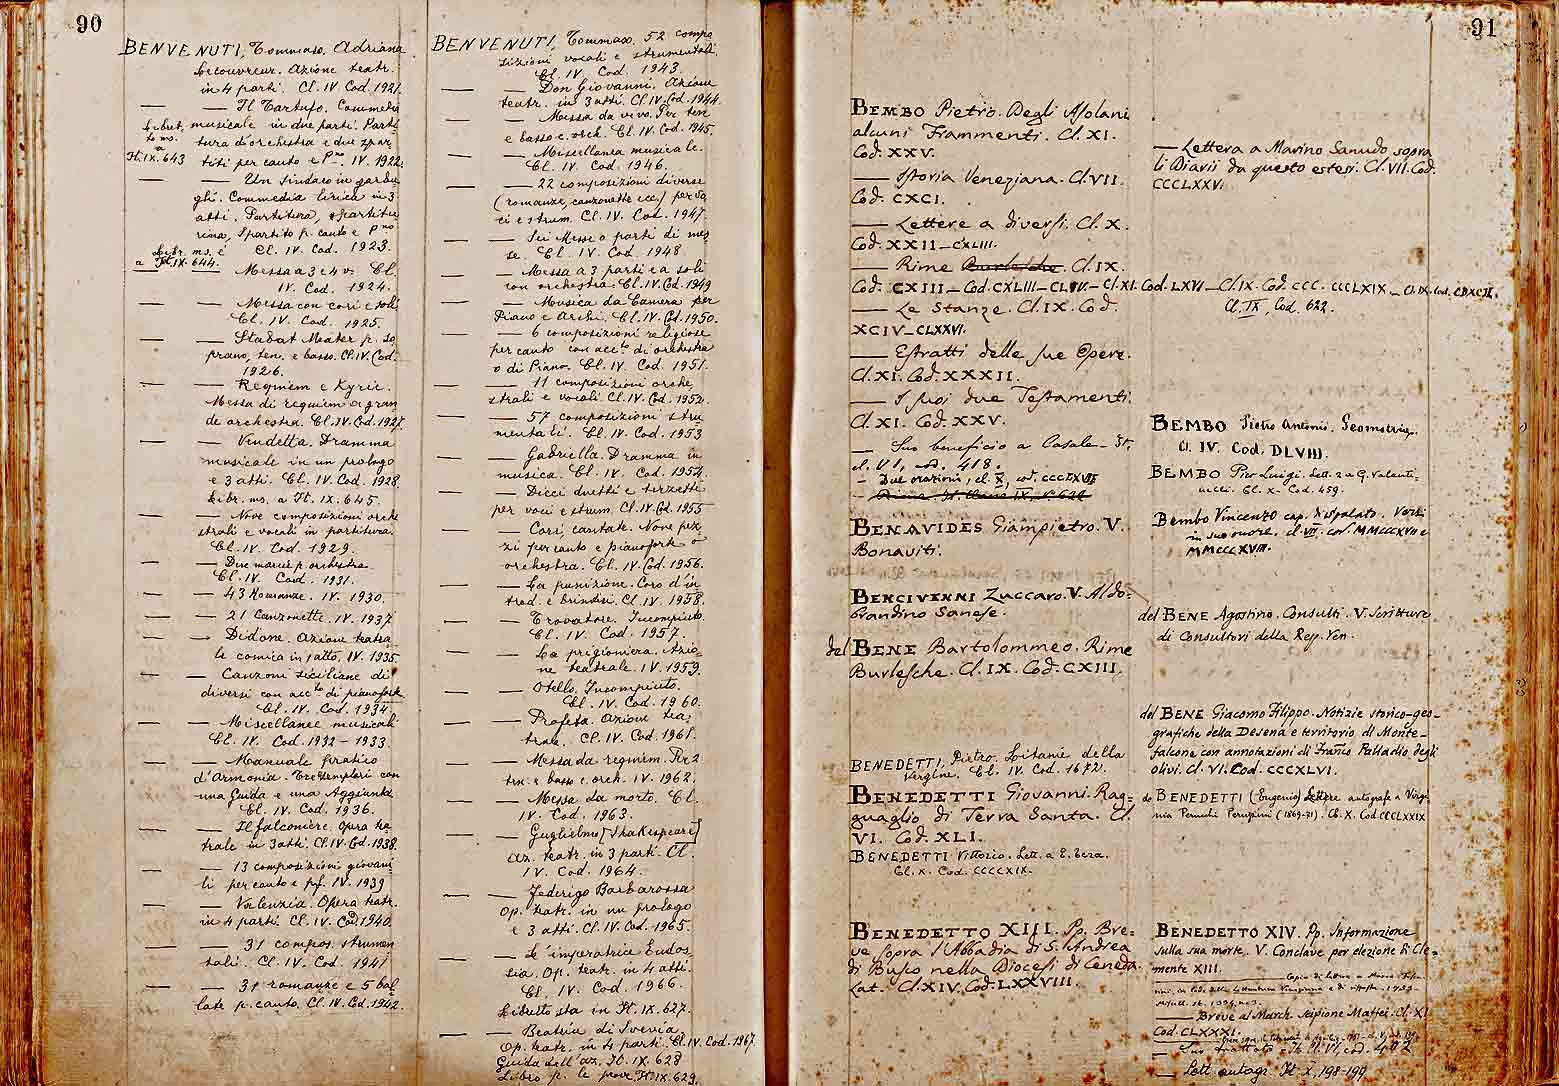 90
BENVENUTI, Tommaso. Adriana
Lecouvreur. Azione teatr.
in 4 parti. Cl. IV Cod. 1921.
— — Il Tartufo. Commedia
musicale in due parti. Parti-
tura d'orchestra e due spar-
titi per canto e P.no IV. 1922.
Libret.
to ms.
a
It. IX. 643
— — Un sindaco in garbu-
gli. Commedia lirica in 3
atti. Partitura, spartiti
Spartito p. canto e P.no
Cl. IV. Cod. 1923.
Libr. ms. è
a It. IX. 644.
— Messa a 3 e 4 v. Cl.
IV. Cod. 1924.
— — Messa con cori e soli
Cl. IV. Cod. 1925.
— — Stabat Mater p. so
prano, ten. e basso. Cl. IV. Cod.
1926.
— — Requiem e Kyrie.
Messa di requiem a gran
de orchestra. Cl. IV. Cod. 1927.
— — Vendetta. Dramma
musicale in un prologo
e 3 atti. Cl. IV. Cod. 1928.
Libr. ms. a It. IX. 645.
— — Nove composizioni orche
strali e vocali in partitura.
Cl. IV. Cod. 1929.
— — Due marcie p. orchestra
Cl. IV. Cod. 1931.
— — 43 Romanze. IV. 1930.
— — 21 Canzonette. IV. 1937
— — Didone. Azione teatra
le comica in 1 atto. IV. 1935.
— — Canzoni siciliane di
diversi con acc.to di pianoforte
Cl. IV. Cod. 1934.
— — Miscellanee musicali
Cl. IV. Cod. 1932 – 1933.
— — Manuale pratico
d'Armonia. Tre esemplari con
una Guida e una Aggiunta
Cl. IV. Cod. 1936.
— — Il falconiere. Opera tea
trale in 3 atti. Cl. IV. Cod. 1938.
— — 13 composizioni giovani
li per canto e pf. IV. 1939
— — Valenzia. Opera teatr.
in 4 parti. Cl. IV. Cod. 1940.
— — 31 compos. strumen
tali. Cl. IV. Cod. 1941
— — 31 romanze e 5 bal
late p. canto. Cl. IV. Cod. 1942.
BENVENUTI, Tommaso. 52 compo
sizioni vocali e strumentali.
Cl. IV. Cod. 1943.
— — Don Giovanni. Azione
teatr. in 3 atti. Cl. IV. Cod. 1944.
— — Messa da vivo. Per ten
e basso e orch. Cl. IV. Cod. 1945.
— — Miscellanea musicale.
Cl. IV. Cod. 1946.
— — 22 composizioni diverse
(romanze, canzonette ecc.) per vo
ci e strum. Cl. IV. Cod. 1947.
— — Sei Messe o parti di mes
se. Cl. IV. Cod. 1948
— — Messa a 3 parti e a soli
con orchestra. Cl. IV. Cod. 1949
— — Musica da Camera per
Piano e Archi. Cl. IV. Cod. 1950.
— — 6 composizioni religiose
per canto con acc.to di orchestra
o di Piano. Cl. IV. Cod. 1951.
— — 11 composizioni orche
strali e vocali Cl. IV. Cod. 1952.
— — 57 composizioni stru
mentali. Cl. IV. Cod. 1953
— — Gabriella. Dramma in
musica. Cl. IV. Cod. 1954.
— — Dieci duetti e terzette
per voci e strum. Cl. IV. Cod. 1955
— — Cori, cantate. Nove pez
zi per canto e pianoforte o
orchestra. Cl. IV. Cod. 1956.
— — La punizione. Coro d'in
trod. e brindisi. Cl. IV. 1958.
— — Trovatore. Incompiuto
Cl. IV. Cod. 1957.
— — La prigioniera. Azio
ne teatrale. IV. 1959.
— — Otello. Incompiuto.
Cl. IV. Cod. 1960.
— — Profeta. Azione tea
trale. Cl. IV. Cod. 1961.
— — Messa da requiem. Per 2
ten. e basso e orch. IV. 1962.
— — Messa da morto. Cl.
IV. Cod. 1963.
— — Guglielmo [Shakespeare]
az. teatr. in 3 parti. Cl.
IV. Cod. 1964.
— — Federigo Barbarossa
Op. teatr. in un prologo
e 3 atti. Cl. IV. Cod. 1965.
— — L'imperatrice Eudos-
sia. Op. teatr. in 4 atti.
Cl. IV. Cod. 1966.
Libretto sta in It. IX. 627.
— — Beatrice di Svevia.
Op. teatr. in 4 parti. Cl. IV. Cod. 1967.
Guida dell'az. It. IX. 628
Libro p. le prove It. IX. 629.
91
BEMBO Pietro. Degli Asolani
alcuni Frammenti. Cl. XI.
Cod. XXV.
— Istoria Veneziana. Cl. VII.
Cod. CXCI.
— Lettere a diversi. Cl. X.
Cod. XXII – CXLIII.
— Rime Burlesche. Cl. IX.
Cod. CXIII – Cod. CXLIII – CLIV. – Cl. XI. Cod. LXVI – Cl. IX. Cod. CCC. CCCLXIX – Cl. IX. Cod. CDXCII.
Cl. IX, Cod. 622.
— Le Stanze. Cl. IX. Cod.
XCIV – CLXXVI.
— Estratti delle sue Opere.
Cl. XI. Cod. XXXII.
— I suoi due Testamenti.
Cl. XI. Cod. XXV.
— Suo beneficio a Casale – It.
cl. VI, cod. 418.
— Due orazioni, cl. X, cod.
BENAVIDES Giampietro. V.
Bonaviti.
BENCIVENNI Zuccaro. V. Aldo-
brandino Sanese.
del BENE Bartolommeo. Rime
Burlesche. Cl. IX. Cod. CXIII.
BENEDETTI, Pietro. Litanie della
Vergine. Cl. IV. Cod. 1672.
BENEDETTI Giovanni. Rag-
guaglio di Terra Santa. Cl.
VI. Cod. XLI.
BENEDETTI Vittorio. Lett. a E. Teza.
Cl. X. Cod. CCCCXIX.
BENEDETTO XIII. Pp. Bre-
ve sopra l'Abbadia di S. Andrea
di Busco nella Diocesi di Ceneda.
Lat. Cl. XIV. Cod. LXXVIII.
— Lettera a Marino Sanudo sopra
li Diarii da questo estesi. Cl. VII. Cod.
CCCLXXV.
BEMBO Pietro Antonio. Geometria.
Cl. IV. Cod. DLVIII.
BEMBO Pier Luigi. Lett. 2 a G. Valenti-
nelli. Cl. X. Cod. 459.
Bembo Vincenzo cap. di Spalato. Versi
in suo onore. cl. VII. cod. MMCCCXVII e
MMCCCXVIII.
del BENE Agostino. Consulti. V. Scritture
di Consultori della Rep. Ven.
del BENE Giacomo Filippo. Notizie storico-geo-
grafiche della Desena e territorio di Monte-
falcone con annotazioni di Franc. Palladio degli
olivi. Cl. VI. Cod. CCCXLVI.
de BENEDETTI (Eugenio) Lettere autografe a Virgi-
nia Perugini (1869-71). Cl. X. Cod. CCCCLXXIX
BENEDETTO XIV. Pp. Informazione
sulla sua morte. V. Conclave per elezione di Cle-
mente XIII.
— Breve al March. Scipione Maffei. Cl. XI
Cod. CLXXXI.
— Suo trattato – It. Cl. VI, cod. 402
— Lett. autogr. It. X, 198-199